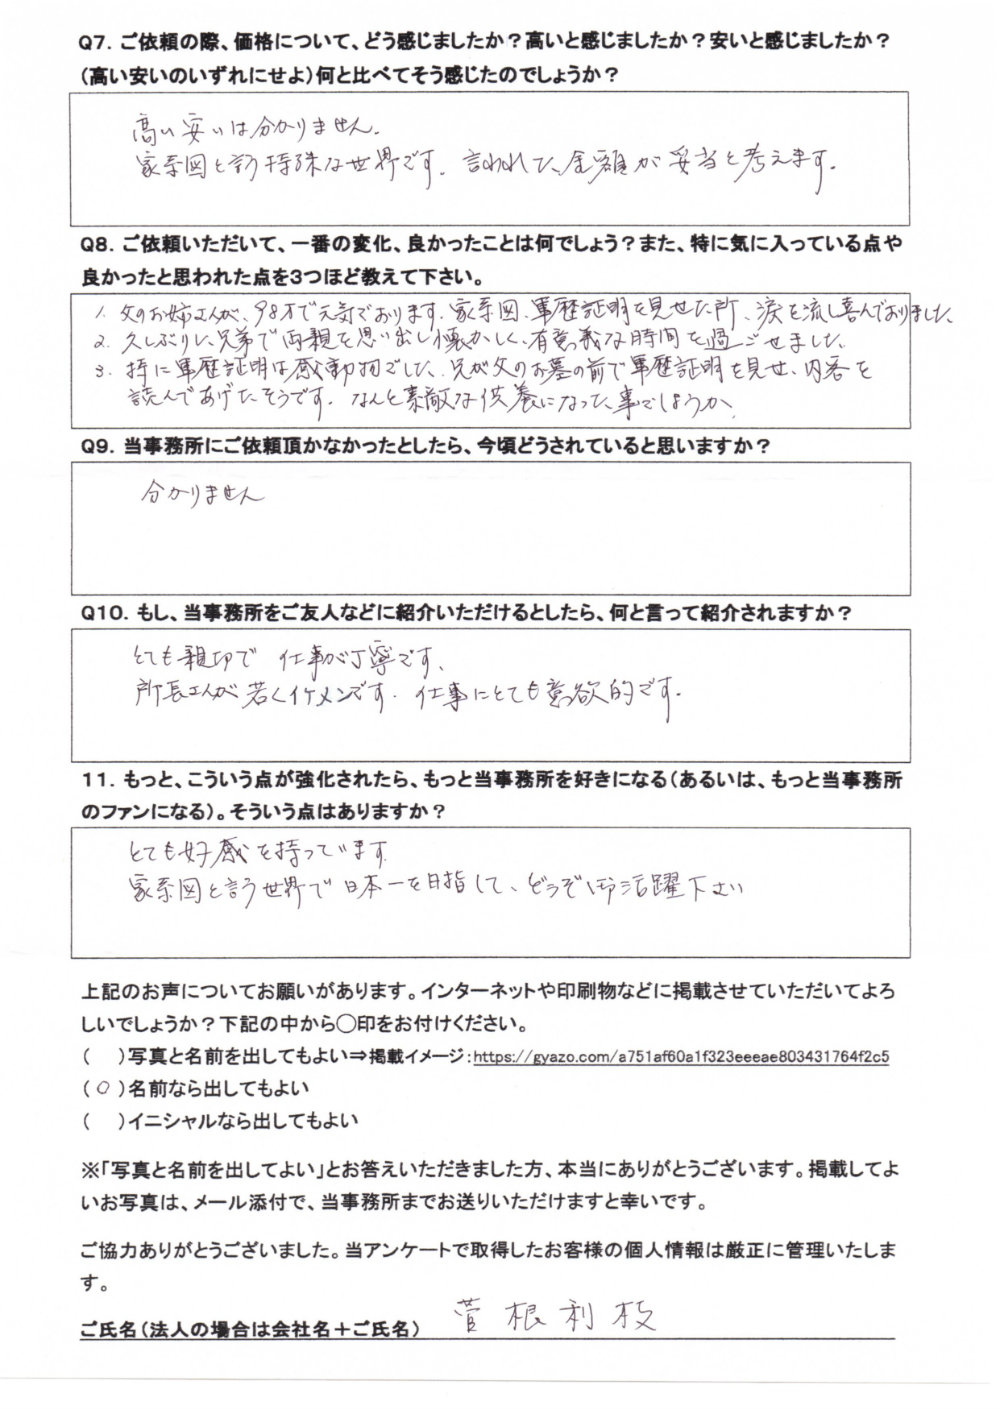 Q7. ご依頼の際、価格について、どう感じましたか？高いと感じましたか？安いと感じましたか？
（高い安いのいずれにせよ）何と比べてそう感じたのでしょうか？
高い安いは分かりません.
家系図と言う特殊な世界です. 言われた、金額が妥当と考えます.
Q8. ご依頼いただいて、一番の変化、良かったことは何でしょう？また、特に気に入っている点や
良かったと思われた点を3つほど教えて下さい。
1. 父のお姉さんが、98才で元気でおります. 家系図、軍歴証明を見せた所、涙を流し喜んでおりました.
2. 久しぶりに兄弟で両親を思い出し懐かしく、有意義な時間を過ごせました.
3. 特に軍歴証明は感動物でした. 兄が父のお墓の前で軍歴証明を見せ、内容を
読んであげたそうです. なんと素敵な供養になった事でしょうか.
Q9. 当事務所にご依頼頂かなかったとしたら、今頃どうされていると思いますか？
分かりません
Q10. もし、当事務所をご友人などに紹介いただけるとしたら、何と言って紹介されますか？
とても親切で 仕事が丁寧です、
所長さんが若くイケメンです. 仕事にとても意欲的です.
11. もっと、こういう点が強化されたら、もっと当事務所を好きになる（あるいは、もっと当事務所
のファンになる）。そういう点はありますか？
とても好感を持っています.
家系図と言う世界で日本一を目指して、どうぞ御活躍下さい
上記のお声についてお願いがあります。インターネットや印刷物などに掲載させていただいてよろ
しいでしょうか？下記の中から○印をお付けください。
（ ）写真と名前を出してもよい⇒掲載イメージ：https://gyazo.com/a751af60a1f323eeeae803431764f2c5
（○）名前なら出してもよい
（ ）イニシャルなら出してもよい
※「写真と名前を出してよい」とお答えいただきました方、本当にありがとうございます。掲載してよ
いお写真は、メール添付で、当事務所までお送りいただけますと幸いです。
ご協力ありがとうございました。当アンケートで取得したお客様の個人情報は厳正に管理いたしま
す。
ご氏名（法人の場合は会社名＋ご氏名） 菅根利枝